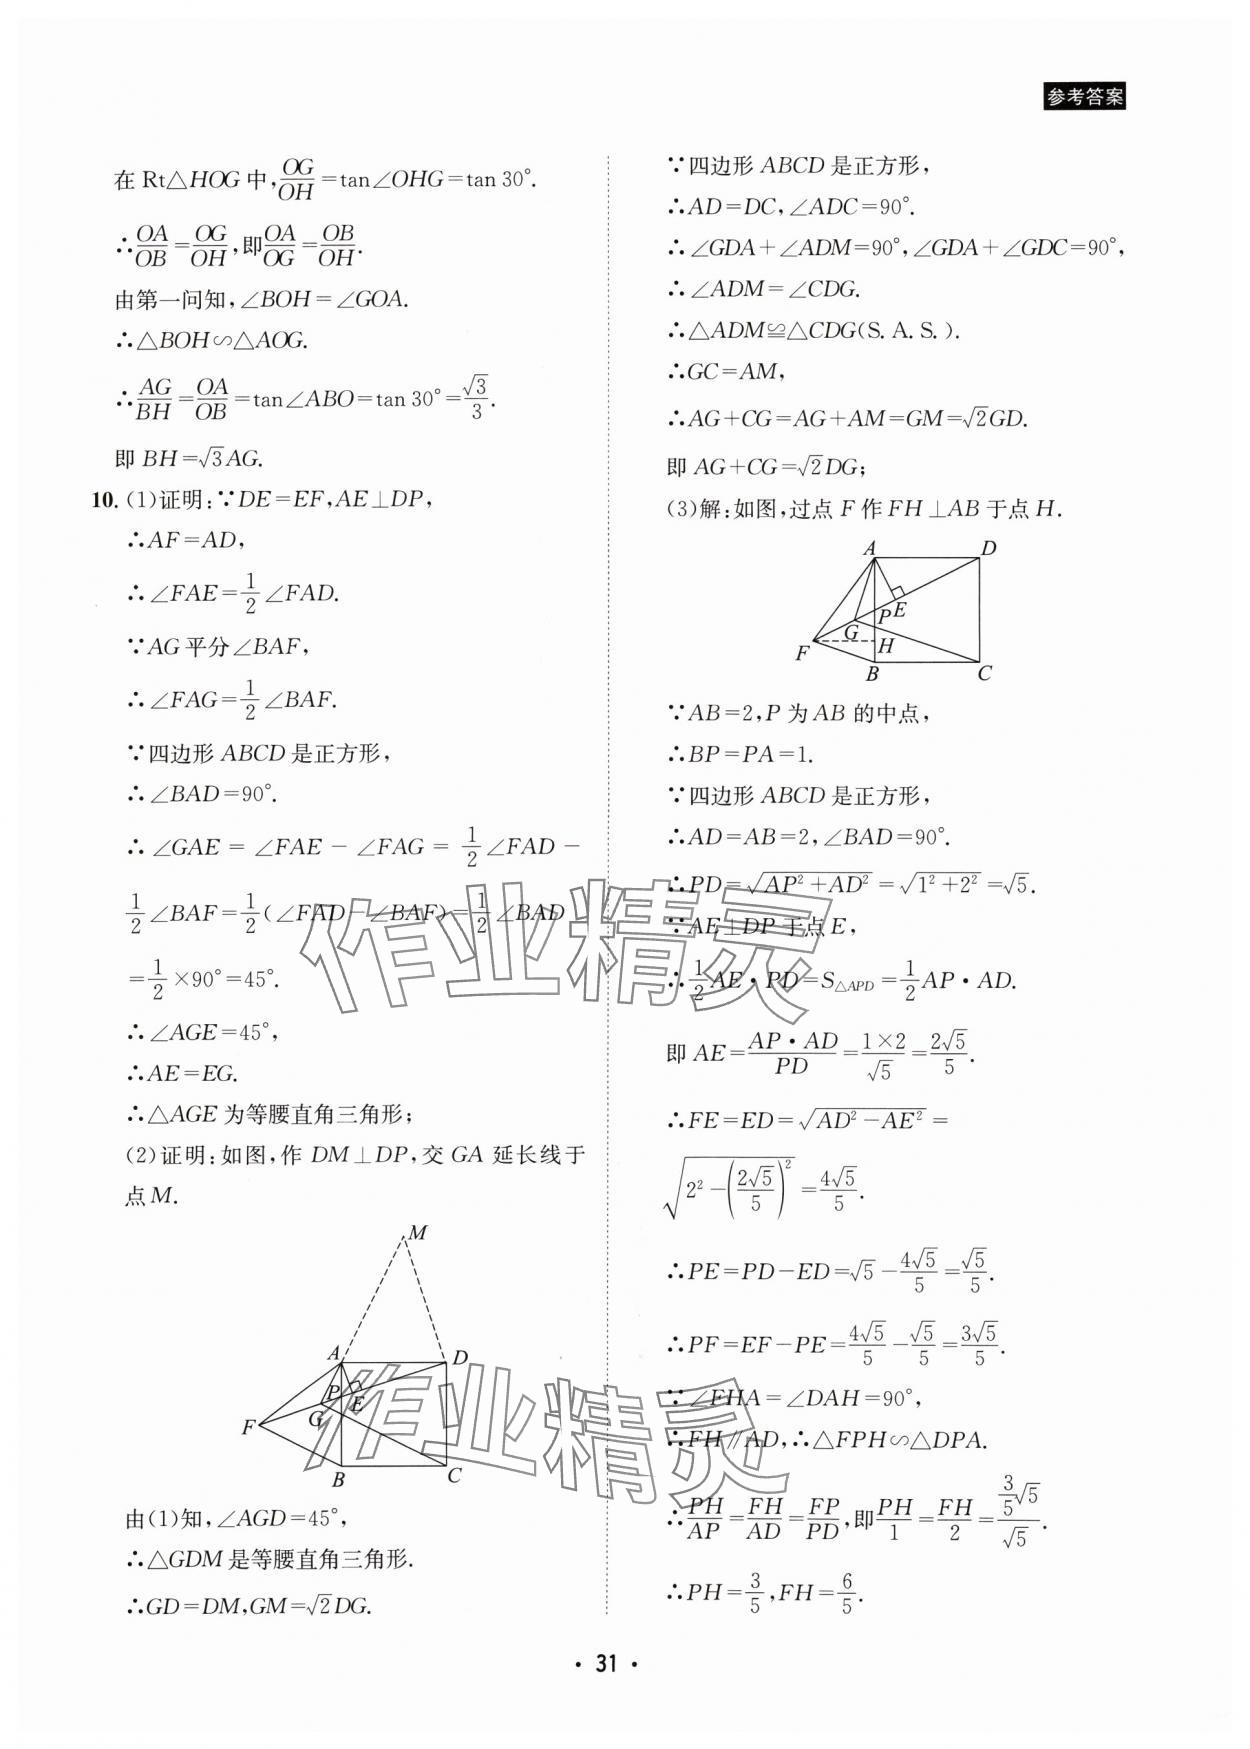 参考答案
在 Rt△HOG 中,OG/OH=tan∠OHG=tan 30°.
∴OA/OB=OG/OH,即OA/OG=OB/OH.
由第一问知,∠BOH=∠GOA.
∴△BOH∽△AOG.
∴AG/BH=OA/OB=tan∠ABO=tan 30°=√3/3.
即 BH=√3AG.
10. (1)证明:∵DE=EF,AE⊥DP,
∴AF=AD,
∴∠FAE=1/2∠FAD.
∵AG 平分∠BAF,
∴∠FAG=1/2∠BAF.
∵四边形 ABCD 是正方形,
∴∠BAD=90°.
∴∠GAE=∠FAE-∠FAG=1/2∠FAD-
1/2∠BAF=1/2(∠FAD-∠BAF)=1/2∠BAD
=1/2×90°=45°.
∴∠AGE=45°,
∴AE=EG.
∴△AGE 为等腰直角三角形;
(2)证明:如图,作 DM⊥DP,交 GA 延长线于
点 M.
M
A
D
P
E
G
F
B
C
由(1)知,∠AGD=45°,
∴△GDM 是等腰直角三角形.
∴GD=DM,GM=√2DG.
∵四边形 ABCD 是正方形,
∴AD=DC,∠ADC=90°.
∴∠GDA+∠ADM=90°,∠GDA+∠GDC=90°,
∴∠ADM=∠CDG.
∴△ADM≌△CDG(S.A.S.).
∴GC=AM,
∴AG+CG=AG+AM=GM=√2GD.
即 AG+CG=√2DG;
(3)解:如图,过点 F 作 FH⊥AB 于点 H.
A
D
P
E
G
H
F
B
C
∵AB=2,P 为 AB 的中点,
∴BP=PA=1.
∵四边形 ABCD 是正方形,
∴AD=AB=2,∠BAD=90°.
∴PD=√(AP²+AD²)=√(1²+2²)=√5.
∵AE⊥DP 于点 E,
∴1/2AE·PD=S△APD=1/2AP·AD.
即 AE=AP·AD/PD=1×2/√5=2√5/5.
∴FE=ED=√(AD²-AE²)=
√(2²-(2√5/5)²)=4√5/5.
∴PE=PD-ED=√5-4√5/5=√5/5.
∴PF=EF-PE=4√5/5-√5/5=3√5/5.
∵∠FHA=∠DAH=90°,
∴FH∥AD,∴△FPH∽△DPA.
∴PH/AP=FH/AD=FP/PD,即PH/1=FH/2=(3/5√5)/√5.
∴PH=3/5,FH=6/5.
作业精灵
作业精灵
· 31 ·